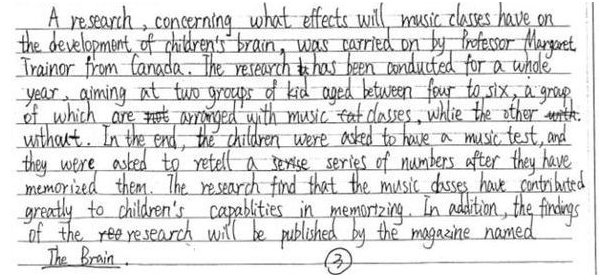 A research, concerning what effects will music classes have on
the development of children's brain, was carried on by Professor Margaret
Trainor from Canada. The research has been conducted for a whole
year, aiming at two groups of kid aged between four to six, a group
of which are arranged with music classes, whlie the other
without. In the end, the children were asked to have a music test, and
they were asked to retell a series of numbers after they have
memorized them. The research find that the music classes have contributed
greatly to children's capablities in memorizing. In addition, the findings
of the research will be published by the magazine named
The Brain.
3